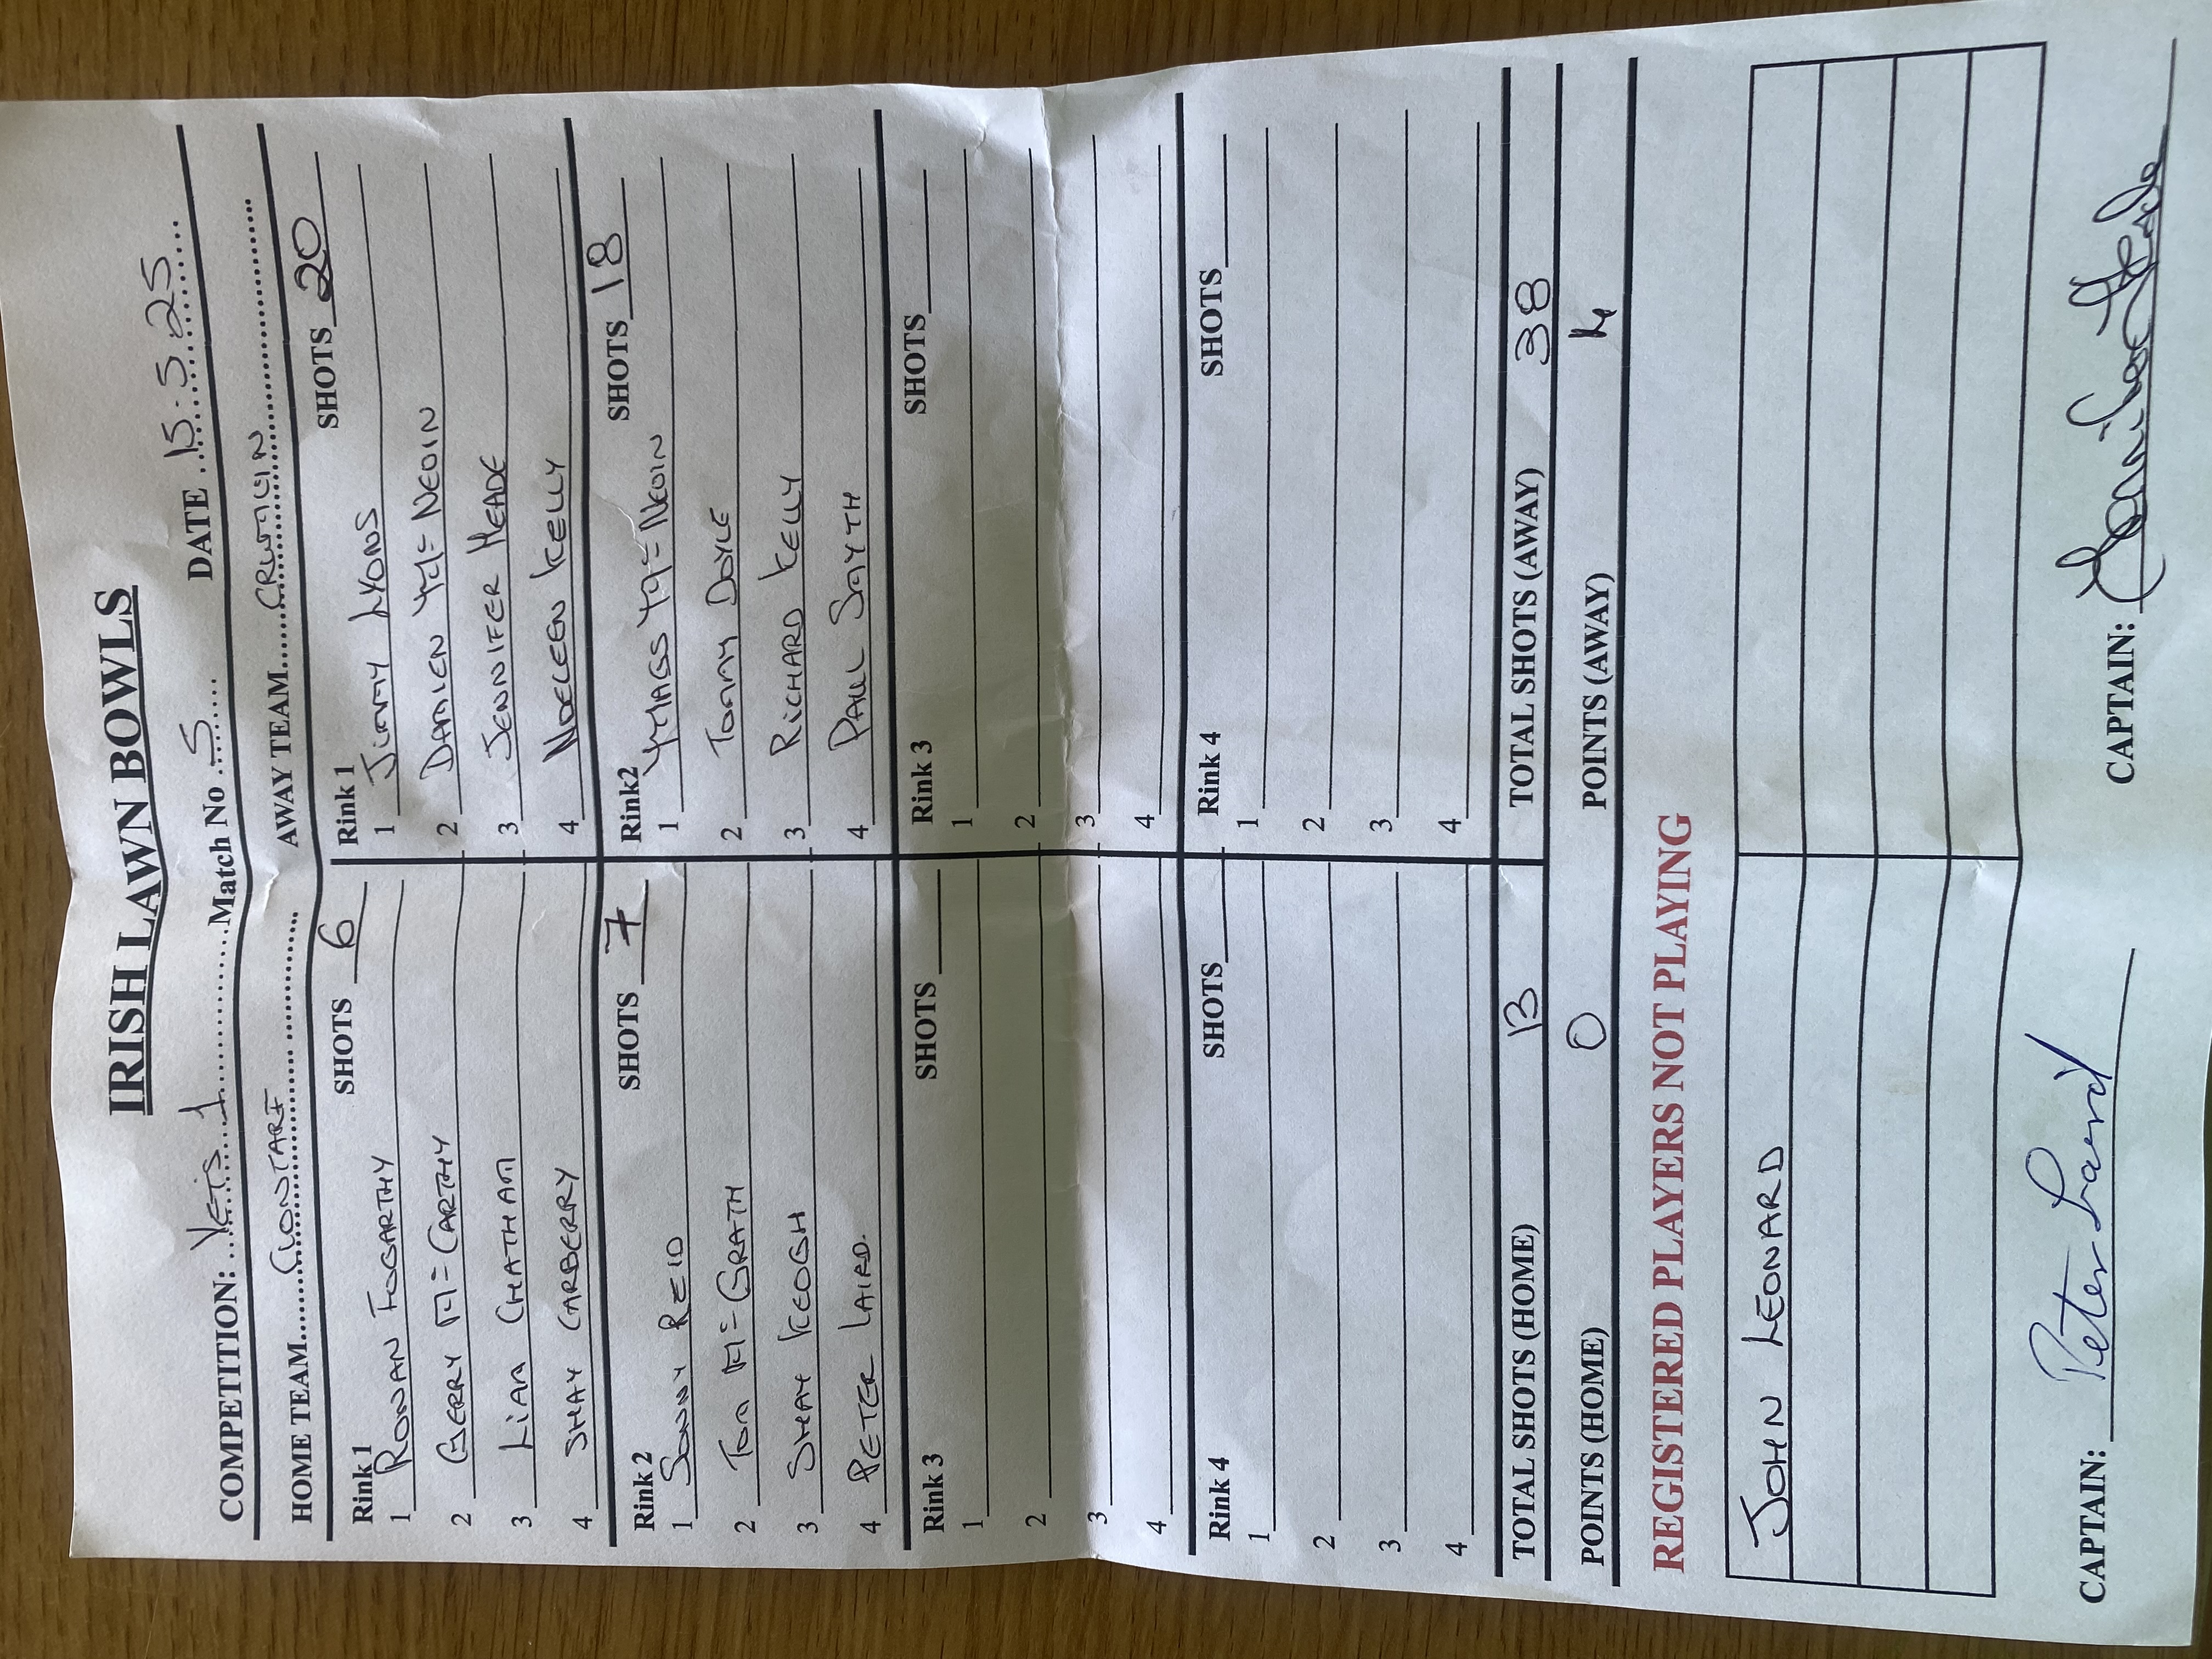 IRISH LAWN BOWLS
COMPETITION: Vets 1 Match No 5 DATE 15-5-25
HOME TEAM CLONTARF AWAY TEAM CRUMLIN
Rink 1 SHOTS 6 Rink 1 SHOTS 20
1 RONAN FOGARTHY 1 Jimmy LYONS
2 GERRY Mc CARTHY 2 DAMIEN
3 LIAM CHATHAM 3 JENNIFER MEADE
4 SHAY CARBERRY 4 NOELEEN KELLY
Rink 2 SHOTS 7 Rink2 SHOTS 18
1 SONNY REID 1
2 TOM Mc GRATH 2 TOMMY DOYLE
3 SHAY KEOGH 3 RICHARD KELLY
4 PETER LAIRD. 4 PAUL SMYTH
Rink 3 SHOTS Rink 3 SHOTS
1 1
2 2
3 3
4 4
Rink 4 SHOTS Rink 4 SHOTS
1 1
2 2
3 3
4 4
TOTAL SHOTS (HOME) 13 TOTAL SHOTS (AWAY) 38
POINTS (HOME) 0 POINTS (AWAY) 4
REGISTERED PLAYERS NOT PLAYING
JOHN LEONARD
CAPTAIN: Peter Laird CAPTAIN: